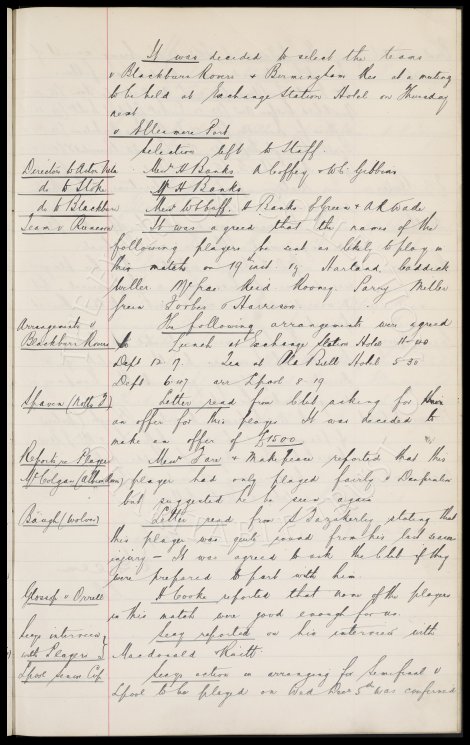 It was decided to select the teams
v Blackburn Rovers & Birmingham Res at a meeting
to be held at Exchange Station Hotel on Thursday
next
v Ellesmere Port
Selection left to Staff.
Director to Aston Villa Messrs H Banks A Coffey & W C Gibbins
do to Stoke Mr H Banks
do to Blackburn Messrs W C Cuff. H Banks E Green & A R Wade
Team v Runcorn It was agreed that the names of the
following players be sent as likely to play in
this match on 19th inst. 
 Harland, Caddick
 McCrae Reid Rooney Parry Miller
Green Forbes & Harrison.
Arrangements v The following arrangements were agreed
Blackburn Rovers to Lunch at Exchange Station Hotel 11-40
Dept 12-17. Tea at Old Bull Hotel 5-30
Dept 6-47 arr Lpool 8-19
Spaven (Notts F) Letter read from club asking for
an offer for this player. It was decided to
make an offer of £1500
Reports re Players Messrs & reported that this
McColgan (Albion) player had only played fairly v Dunfermline
but suggested he be seen again
Baugh (Wolves) Letter read from S Tazakerley stating that
this player was quite sound from his last season
injury - It was agreed to ask the club if they
were prepared to part with him.
Glossop v Orrell H Cooke reported that none of the players
in this match were good enough for us.
Secys interview Secy reported on his interview with
with Players Macdonald &
Lpool Senior Cup Secys action in arranging for Semifinal v
Lpool to be played on Wed Dec 5th was confirmed